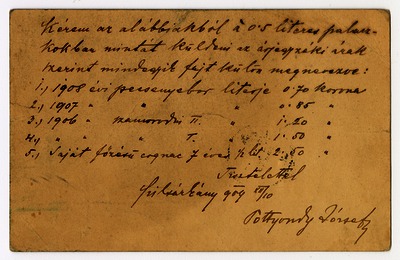 Kérem az alábbiakból à 0·5 literes palacz-
kokban mintát küldeni az árjegyzéki árak
szerint mindegyik fajt külön megnevezve:
1.) 1908 évi pecsenyebor literje 0·70 korona
2.) 1907 " " " 0·85 "
3.) 1906 " szamorodni II. " 1·20 "
4.) " " " I. " 1·50 "
5.) Saját főzésű cognac 7 éves ½ lit. 2·50 "
Tisztelettel
Szilsárkány 909 XII/10
Pottyondy József